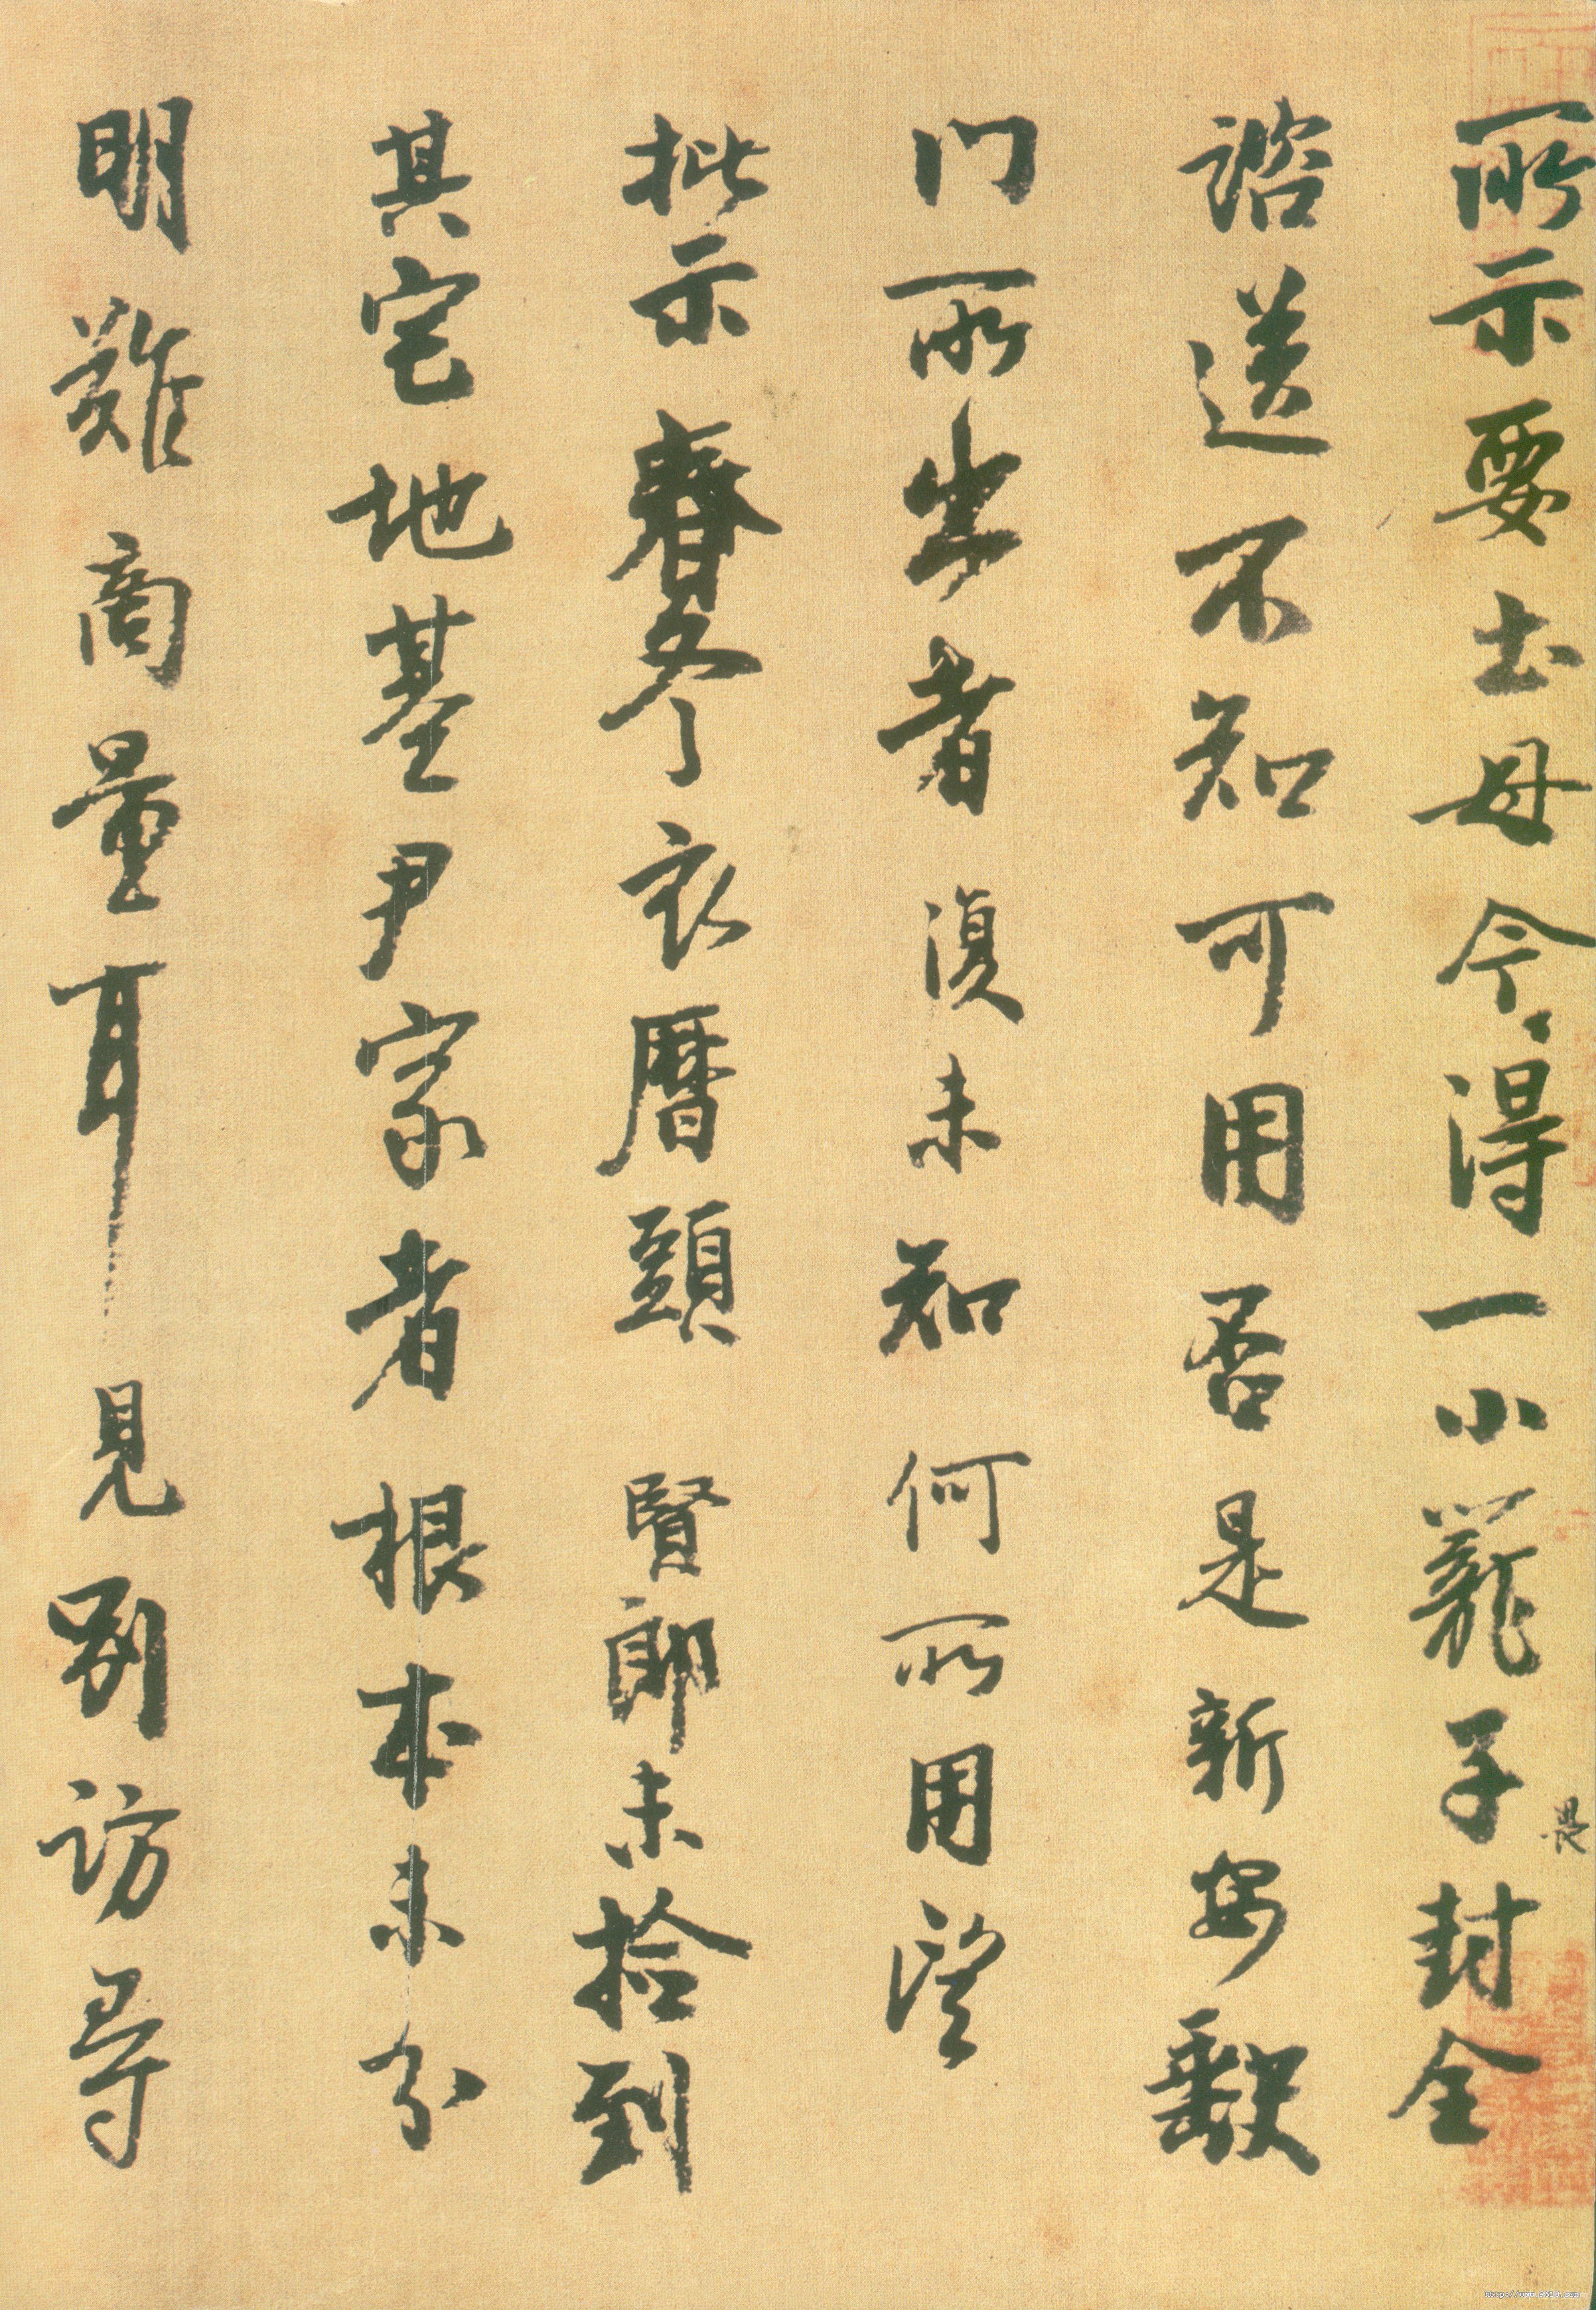 所示要土母今得一小籠子封全
是
諮送不知可用否是新安缺
门所出者復未知何所用望
批示春冬衣曆頭賢郎未撿到
其宅地基尹家者根本未分
明難商量耳見別訪尋